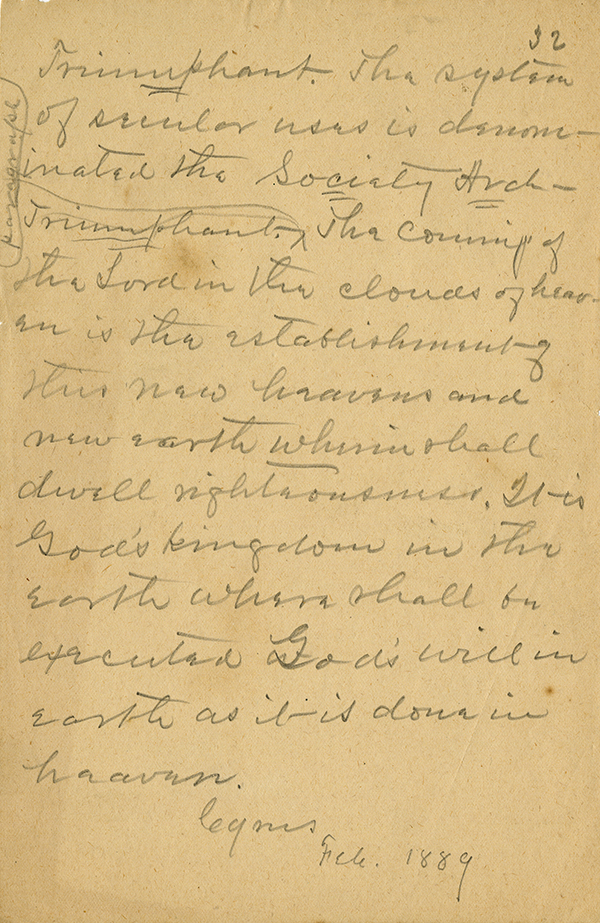 32
Triumphant. The system
of secular uses is denom-
inated the Society Arch-
paragraph
Triumphant. The coming of
the Lord in the clouds of heav-
en is the establishment of
this new heavens and
new earth wherein shall
dwell righteousness. It is
God's kingdom in the
earth where shall be
executed God's will in
earth as it is done in
heaven.
Cyrus
Feb. 1889